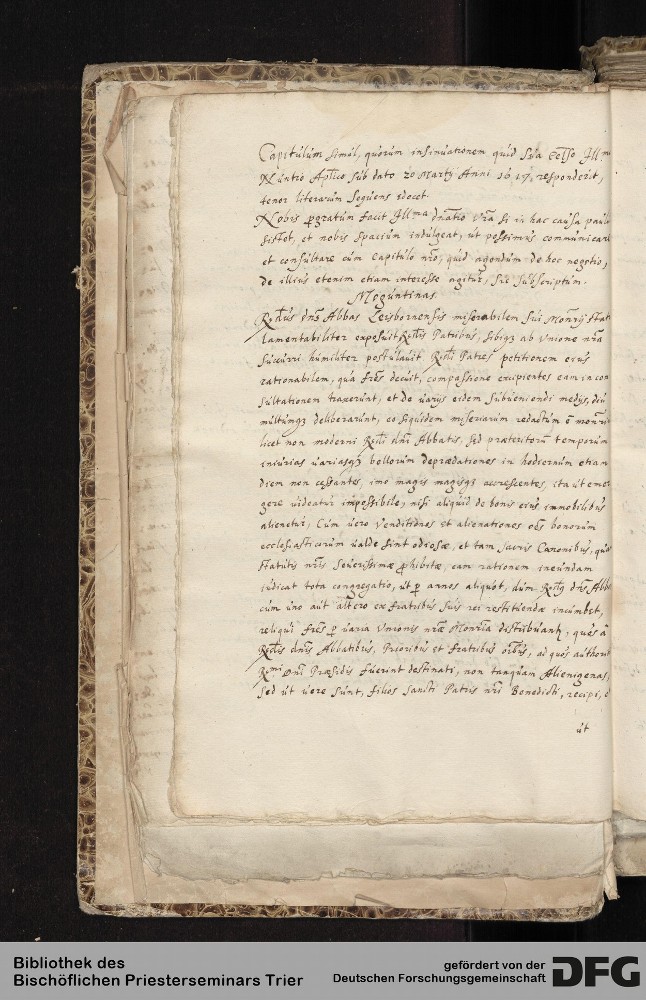 Capitulum simul, quorum insinuationem quid Sua Celso Illma
Nuntio Aplico sub dato 20 Martij Anni 1647, responderit,
tenor literarum sequens docet.
Nobis pgratum facit Illma dnatio Vra si in hac causa paulu
sistet, et nobis spacium indulgeat, ut possimus communicare
et consultare cum Capitulo nro, quid agendum de hoc negotio,
de illius etenim etiam interesse agitur, sic subscriptum.
Moguntinas.
Rndus dns Abbas Leisbornensis miserabilem sui Monrij stat
lamentabiliter exposuit Rndis Patribus, sibiqz ab Unione nra
succurri humiliter postulavit Rndi Patres petitionem eius
rationabilem, qua fres decuit, compassione excipientes eam in con
sultationem traxerunt, et de varijs eidem subveniendi medijs, diu
multumqz deliberarunt, eo siquidem miseriarum redactum e monri
licet non moderni Rndi dni Abbatis, sed praeteritoru temporum
iniurias variasqz bellorum depraedationes in hodiernum etiam
diem non cessantes, imo magis magisqz accrescentes, ita ut emer
gere videatur impossibile, nisi aliquid de bonis eius immobilibus
alienetur, Cum vero venditiones et alienationes oes bonorum
ecclesiasticorum valde sint odiosae, et tam sacris Canonibus, qua
statutis nris severissime prohibitae, eam rationem ineundam
iudicat tota congregatio, ut p annos aliquot, dum Rndq dns Abb
cum uno aut altero ex fratribus suis rei restituendae incumbet,
reliqui fres p varia Unionis nrae Monria distribuantr, ques a
Rndis dnis Abbatibus, Prioribus et fratribus oibus, ad quos authorit
Rmi Dni Praesidis fuerint destinati, non tanquam Alienigenas,
sed ut vere sunt, filios Sancti Patris nri Benedicti, recipi, e
ut
Bibliothek des
Bischöflichen Priesterseminars Trier
gefördert von der
Deutschen Forschungsgemeinschaft
DFG